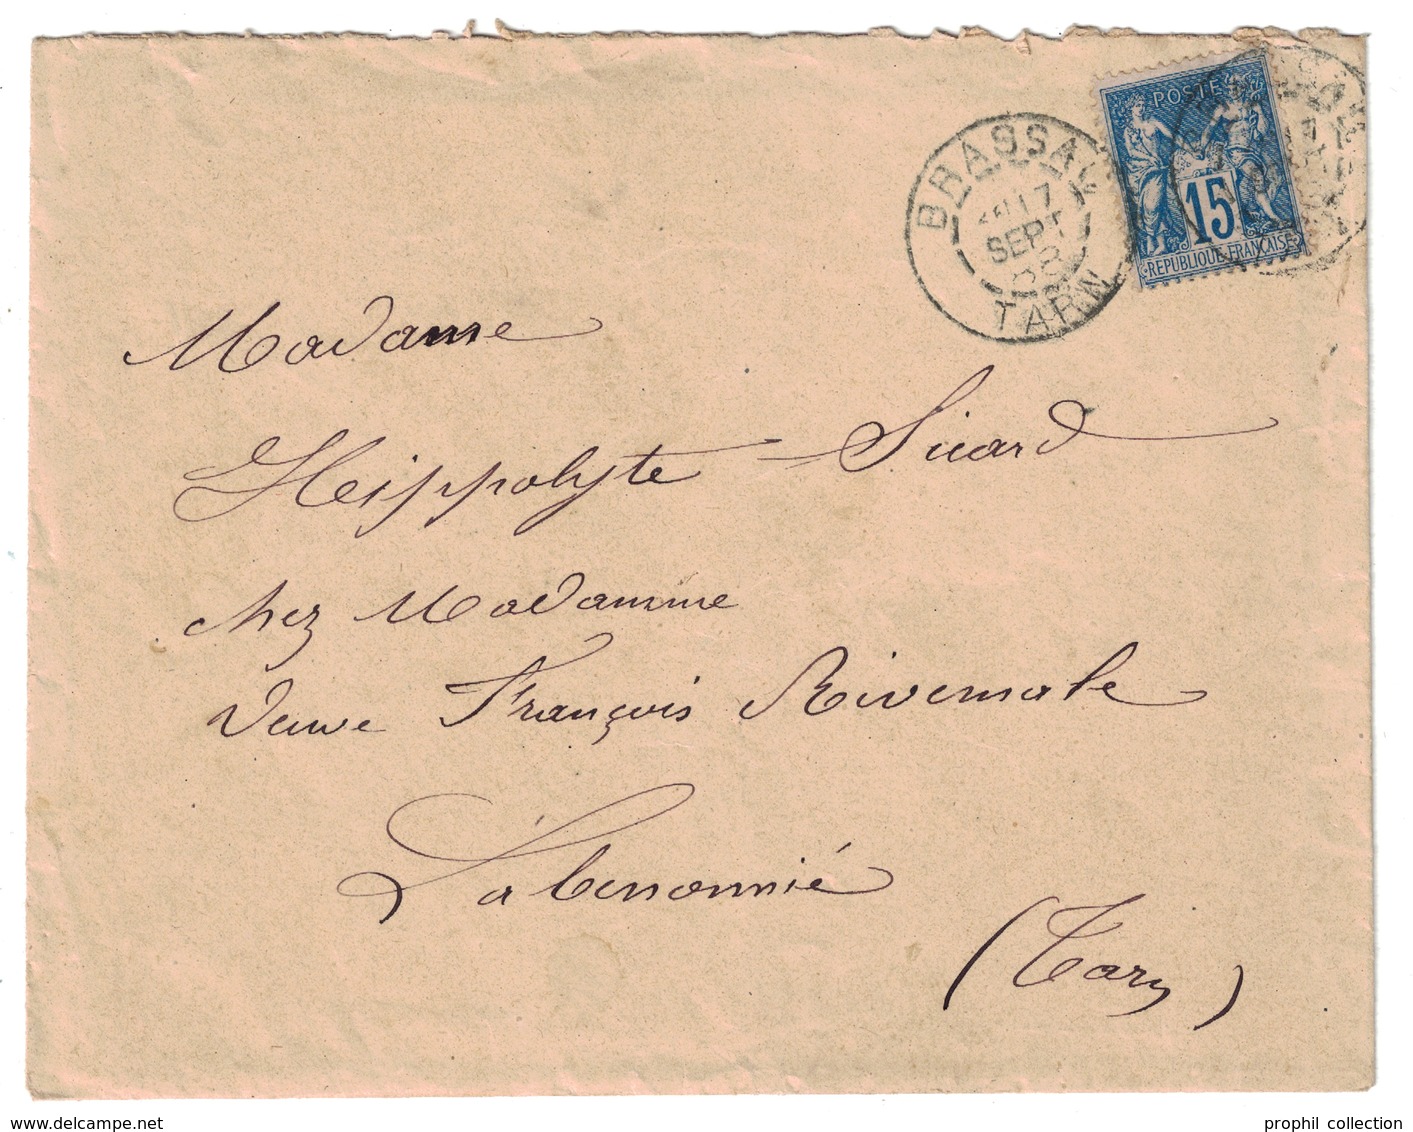 POSTE
15
REPUBLIQUE FRANÇAISE
BRASSAC
17
SEPT
88
TARN
Madame
Hippolyte Sicard
chez Madamme
Veuve François Rivemale
Labessonnié
(Tarn)
www.delcampe.net
prophil collection